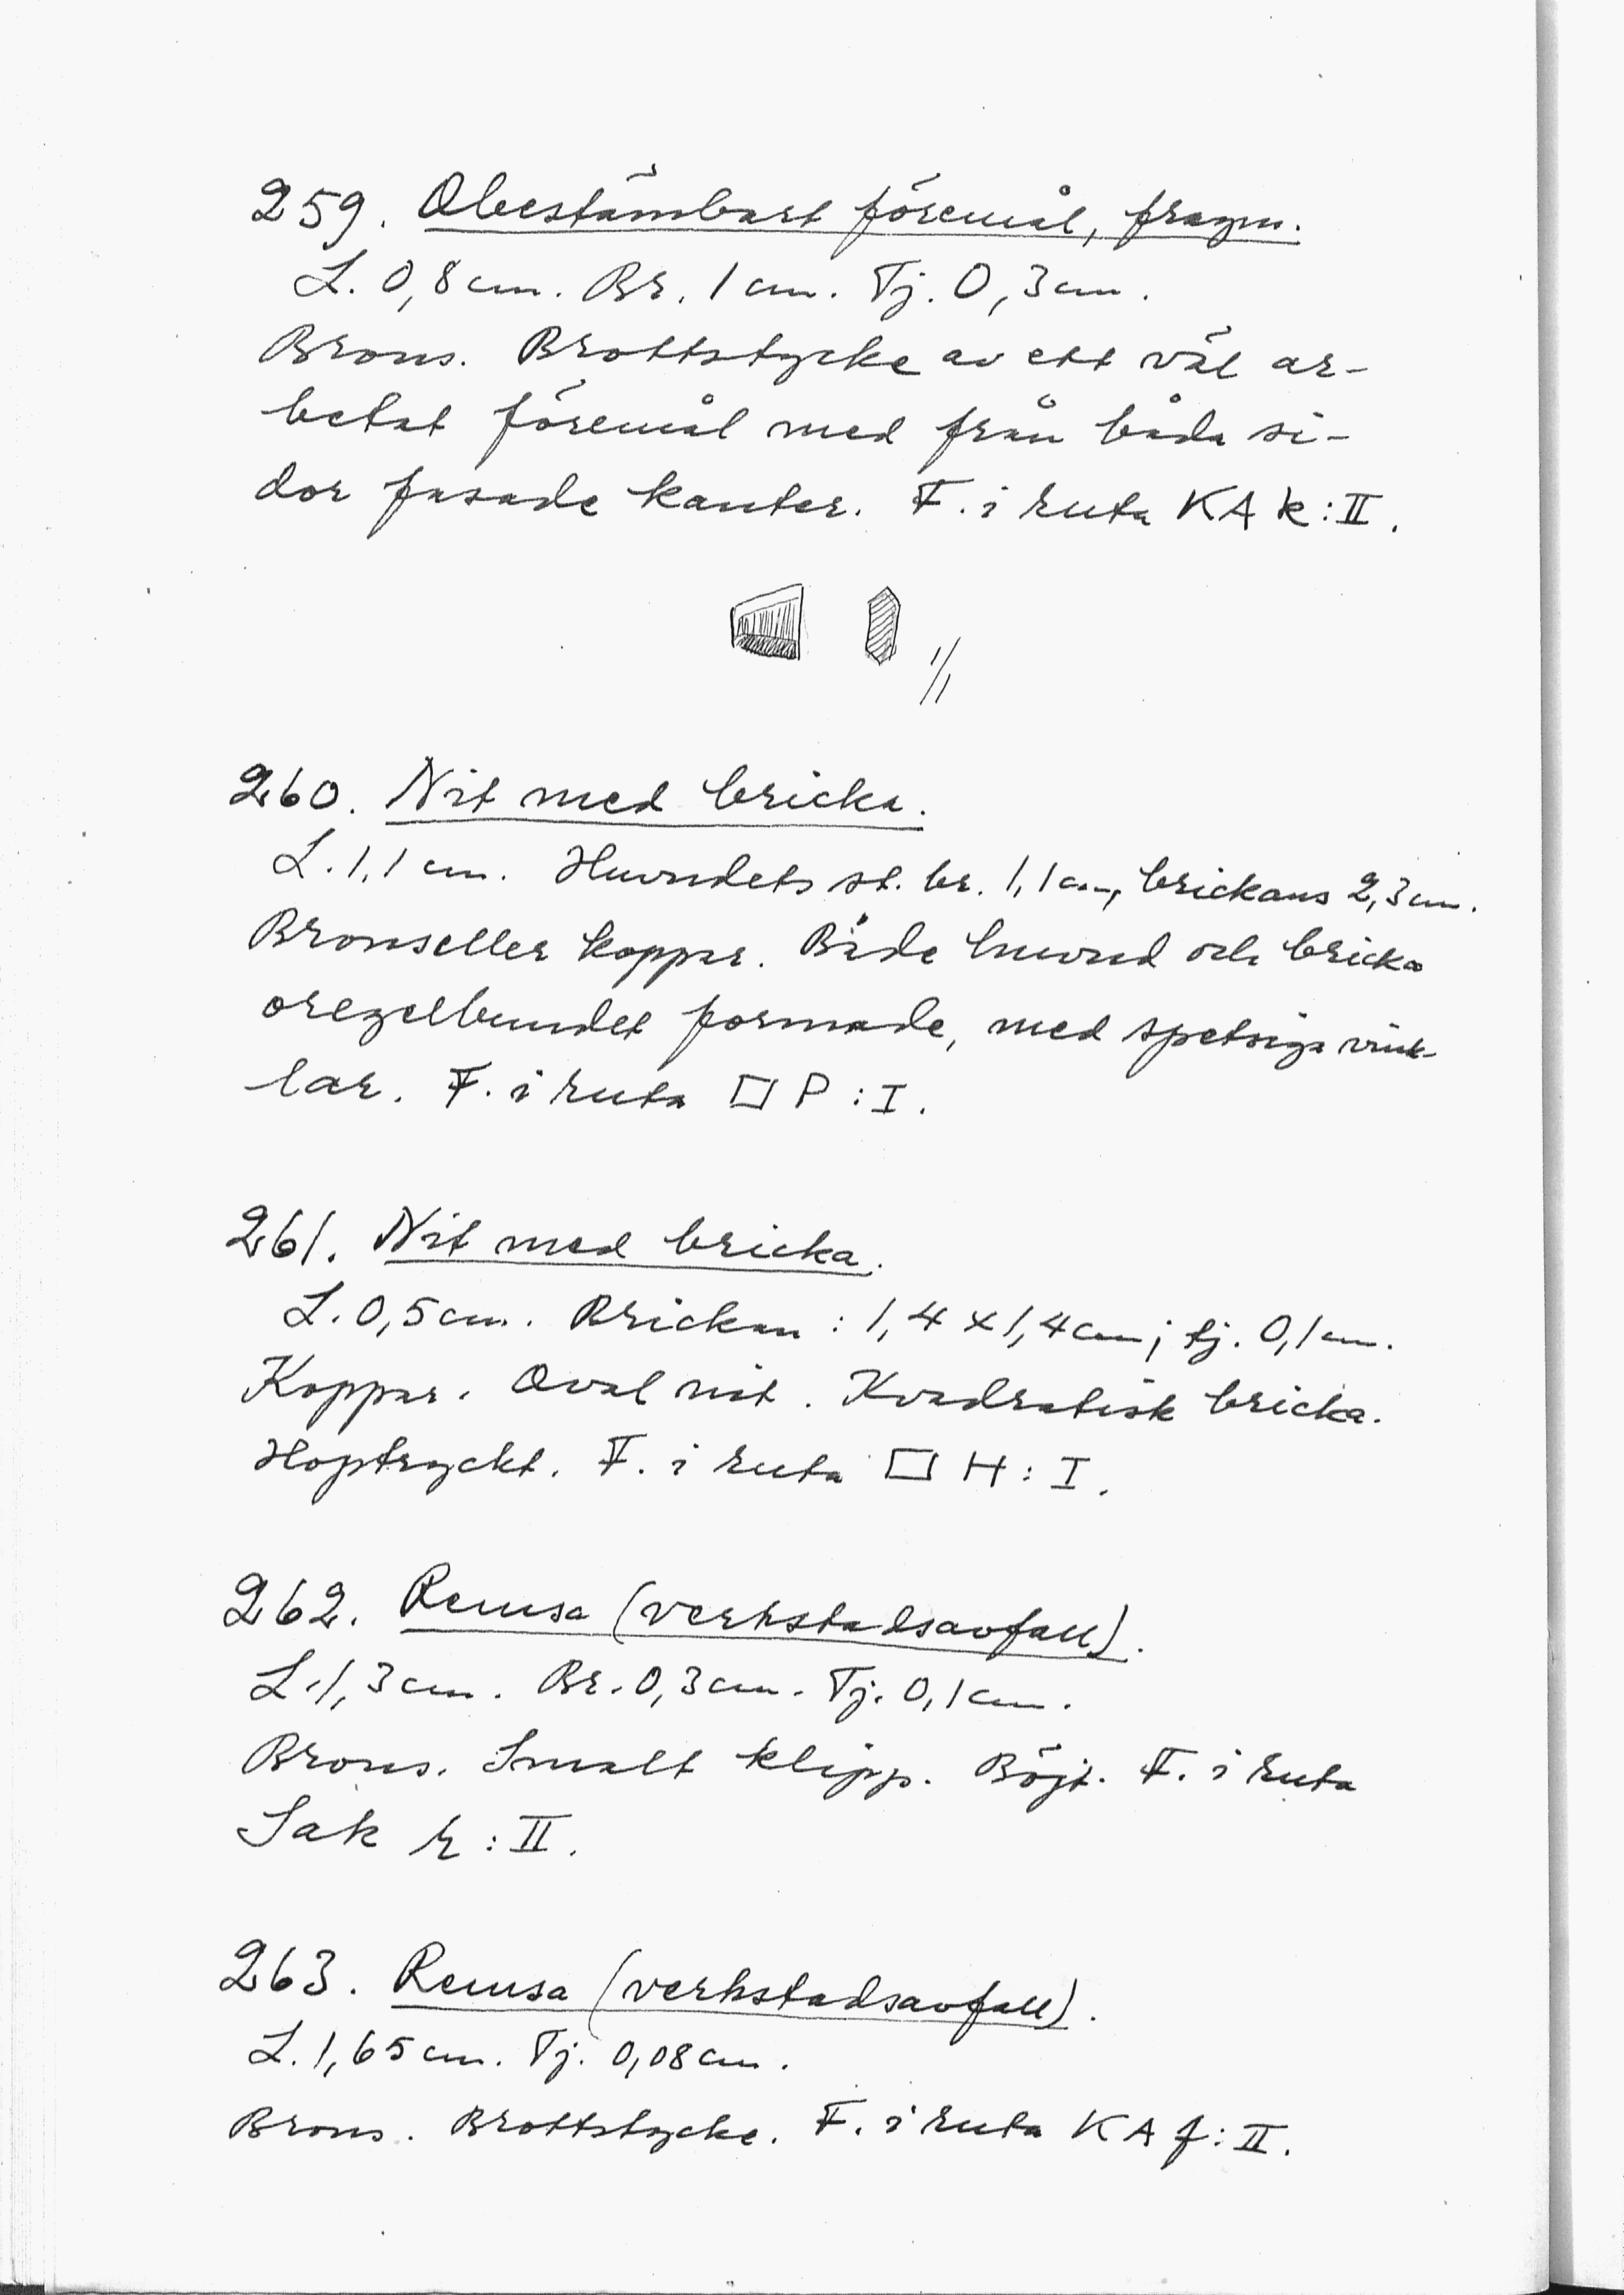 259. Obestämbart föremål, fragm.
L. 0,8 cm. Br. 1 cm. Tj. 0,3 cm.
Brons. Brottstycke av ett väl ar-
betat föremål med från båda si-
dor fasade kanter. F. i ruta KA k:II.
1/1
260. Nit med bricka.
L. 1,1 cm. Huvudets st. br. 1,1 cm, brickans 2,3 cm.
Brons eller koppar. Både huvud och bricka
oregelbundet formade, med spetsiga vink-
lar. F. i ruta □ P : I.
261. Nit med bricka.
L. 0,5 cm. Brickan : 1,4 x 1,4 cm; tj. 0,1 cm.
Koppar. Oval nit. Kvadratisk bricka.
Hoptryckt. F. i ruta □ H : I.
262. Remsa (verkstadsavfall).
L. 1,3 cm. Br. 0,3 cm. Tj. 0,1 cm.
Brons. Smalt klipp. Böjt. F. i ruta
Sak r : II.
263. Remsa (verkstadsavfall).
L. 1,65 cm. Tj. 0,08 cm.
Brons. Brottstycke. F. i ruta KA f : II.